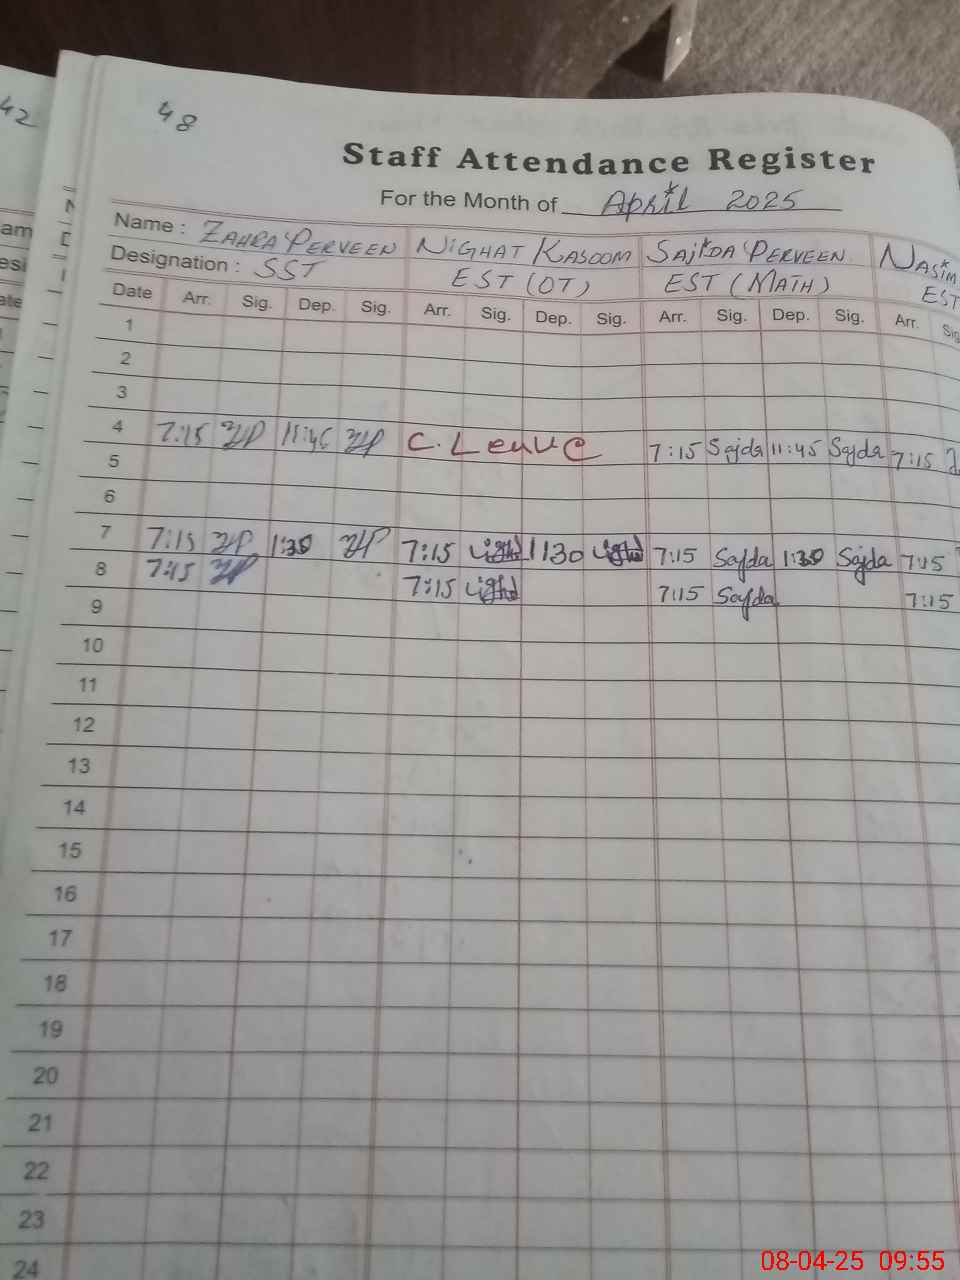 42
48
Staff Attendance Register
For the Month of April 2025
Name : ZAHRA PERVEEN NIGHAT KASOOM SAJIDA PERVEEN NASIM
Designation : SST EST (OT) EST (MATH) EST
Date Arr. Sig. Dep. Sig. Arr. Sig. Dep. Sig. Arr. Sig. Dep. Sig. Arr. Sig
1
2
3
4 7:15 ZP 11:45 ZP C. Leave 7:15 Sajda 11:45 Sajda 7:15
5
6
7 7:15 ZP 1:30 ZP 7:15 1130 7:15 Sajda 1:30 Sajda 7:15
8 7:15 ZP 7:15 7:15 Sajda 7:15
9
10
11
12
13
14
15
16
17
18
19
20
21
22
23
24
08-04-25 09:55